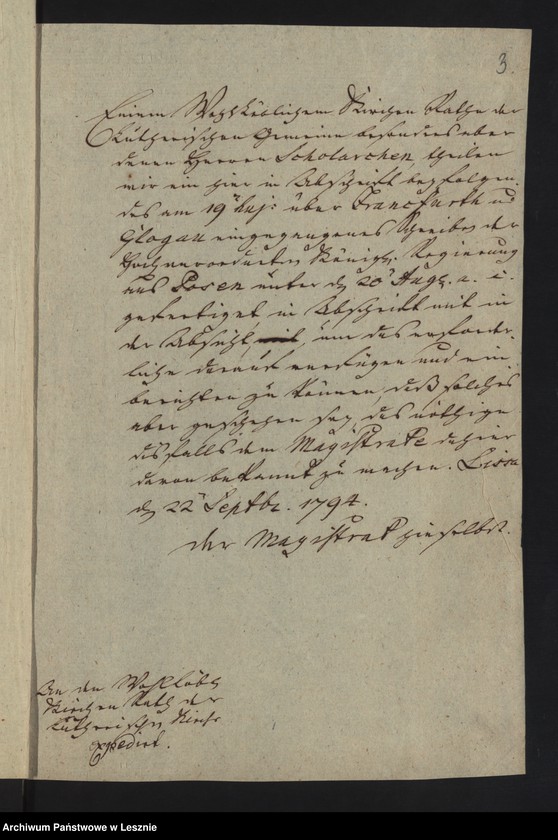 3.
Einem Wohllöblichem Kirchen Rathe der
Lutherischen Gemeine besonders aber
denen Herren Scholarchen, theilen
wir ein hier in Abschrift beyfolgen,
des am 19t huj: über Francfurth und
Glogau eingegangenes Schreiben der
Hochverordneten Königl. Regierung
aus Posen unter d 20t Aug. a. c.
gefertiget in Abschrift mit in
der Absicht, um das erforder,
liche darauf verfügen und ein,
berichten zu können, daß solches
aber geschehen sey das nöthige
diesfalls dem Magistrate dahier
davon bekannt zu machen. Lissa
d 22t Septbr. 1794.
der Magistrat hieselbst.
An den Wohllöbl
Kirchen Rath der
Lutherischen Kirche
expedirt.
Archiwum Państwowe w Lesznie